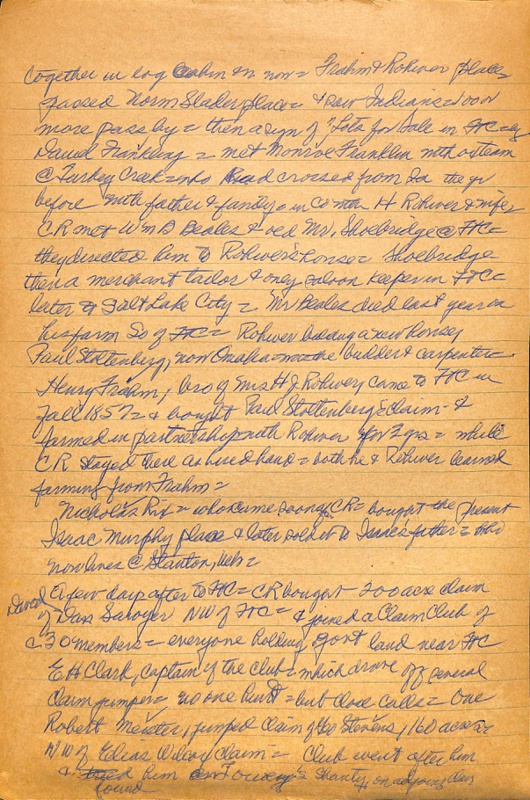 together in log cabin on now = Frahm & Rohwer place =
passed Norm Slader place = & saw Indians = 100 or
more pass by = then a sign of "Lots for Sale in FtC = by
David Franklin = met Monroe Franklin with ox team
@ Turkey Creek = who had crossed from Ia the yr
before with father & family = in Co with H Rohwer & wife
C.R met Wm B Beales & red Mr. Shoebridge @ FtC =
they directed him to Rohwer's house = Shoebridge =
then a merchant tailor & only saloon keeper in FtC =
later to Salt Lake City = Mr Beales died last year on
his farm So of FtC = Rohwer bldng a new house
Paul Stoltenberg, now Omaha = the builder & carpenter =
Henry Frahm, bro of Mrs H J Rohwer, came to FtC in
fall 1857 = & bought Paul Stoltenberg's claim - &
farmed in partnership with Rohwer for 2 yrs = while
C.R stayed there as hired hand = both he & Rohwer learned
farming from Frahm =
Nicholas Rix = who came soon CR = bought the present
Isaac Murphy place & later sold it to Isaac's father = who
now lives @ Stanton, Neb =
A few days after to FtC = CR bought 200 acre claim
David
of Dax Sawyer NW of FtC = & joined a Claim Club of
c 30 members = everyone holding govt land near FtC
E H Clark, captain of the club = which drove off several
claim jumpers = no one hurt = but close calls = One
Robert Meister, jumped claim of Geo Stevens, 160 acres =
NW of Elias Wilcox claim = Club went after him
& tried him in shanty on adjoing claim
found